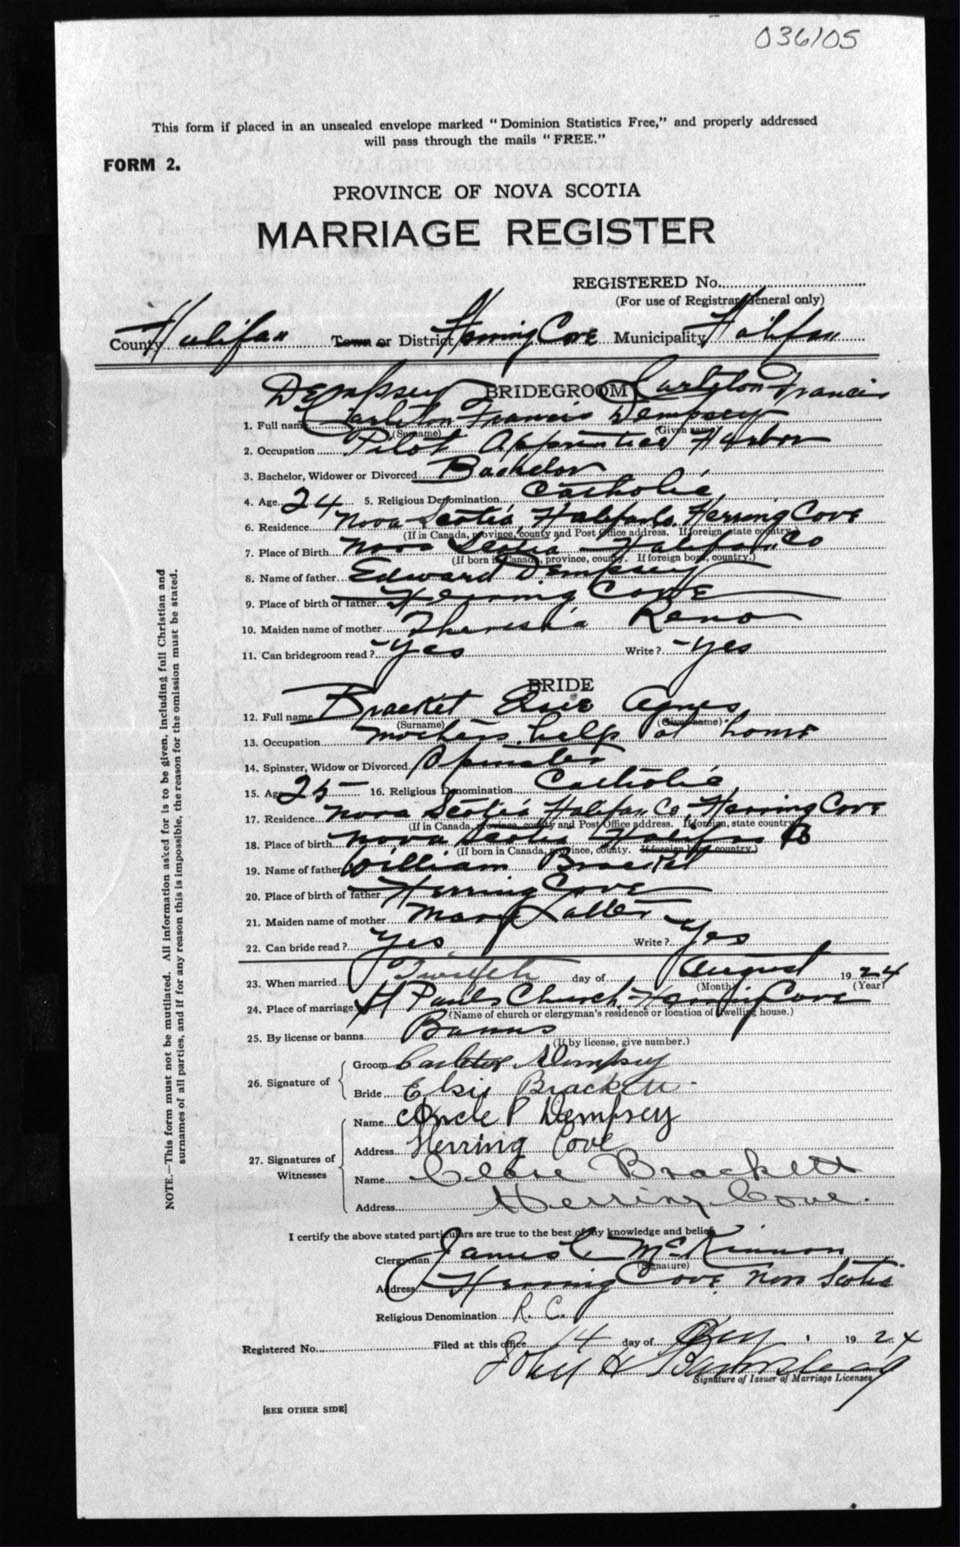 036105
This form if placed in an unsealed envelope marked "Dominion Statistics Free," and properly addressed
will pass through the mails "FREE."
FORM 2.
PROVINCE OF NOVA SCOTIA
MARRIAGE REGISTER
REGISTERED No.
(For use of Registrar General only)
County Halifax Town or District Herring Cove Municipality Halifax
BRIDEGROOM
Dempsey Carleton Francis
1. Full name Carleton Francis Dempsey
(Surname) (Given name)
2. Occupation Pilot Apprentice Harbor
3. Bachelor, Widower or Divorced Bachelor
4. Age 24 5. Religious Denomination Catholic
6. Residence Nova Scotia, Halifax Co, Herring Cove
(If in Canada, province, county and Post Office address. If foreign, state country.)
7. Place of Birth Nova Scotia Halifax Co
(If born in Canada, province, county. If foreign born, country.)
8. Name of father Edward Dempsey
9. Place of birth of father Herring Cove
10. Maiden name of mother Theresia Reno
11. Can bridegroom read? Yes Write? Yes
BRIDE
12. Full name Bracket Elsie Agnes
(Surname) (Given name)
13. Occupation mothers help at home
14. Spinster, Widow or Divorced Spinster
15. Age 25 16. Religious Denomination Catholic
17. Residence Nova Scotia Halifax Co, Herring Cove
(If in Canada, province, county and Post Office address. If foreign, state country.)
18. Place of birth Nova Scotia Halifax Co
(If born in Canada, province, county. If foreign born, country.)
19. Name of father William Bracket
20. Place of birth of father Herring Cove
21. Maiden name of mother Mary
22. Can bride read? Yes Write? Yes
23. When married Twelfth day of August 1924
(Month) (Year)
24. Place of marriage St Pauls Church, Herring Cove
(Name of church or clergyman's residence or location of dwelling house.)
25. By license or banns Banns
(If by license, give number.)
26. Signature of
Groom Carleton Dempsey
Bride Elsie Brackett
27. Signatures of Witnesses
Name P Dempsey
Address Herring Cove
Name Brackett
Address Herring Cove.
I certify the above stated particulars are true to the best of my knowledge and belief.
Clergyman James C McKinnon
(Signature)
Address Herring Cove, Nova Scotia
Religious Denomination R. C.
Registered No. Filed at this office 14 day of Aug 1924
John H Barnstead
Signature of Issuer of Marriage Licenses
[SEE OTHER SIDE]
NOTE.—This form must not be mutilated. All information asked for is to be given, including full Christian and
surnames of all parties, and if for any reason this is impossible, the reason for the omission must be stated.